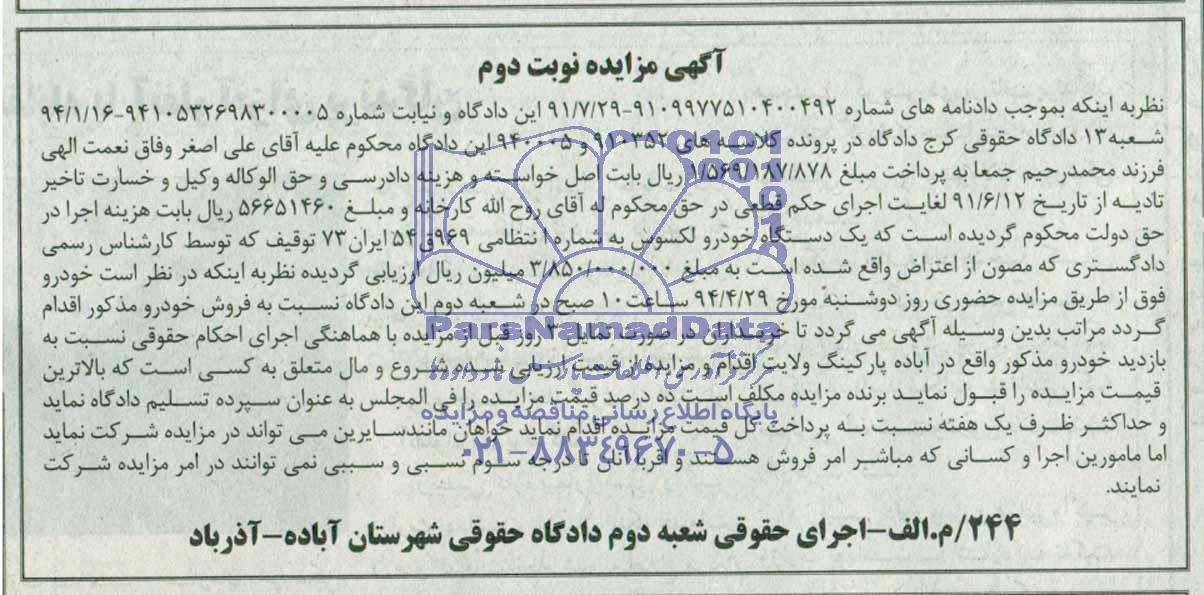 آگهی مزایده نوبت دوم
نظربه اینکه بموجب دادنامه های شماره ۹۱۰۹۹۷۷۵۱۰۴۰۰۴۹۲-۹۱/۷/۲۹ این دادگاه و نیابت شماره ۹۴۱۰۵۳۲۶۹۸۳۰۰۰۰۵-۹۴/۱/۱۶
شعبه۱۳ دادگاه حقوقی کرج دادگاه در پرونده کلاسه های ۹۱۰۳۵۲ و ۹۴۰۰۰۵ این دادگاه محکوم علیه آقای علی اصغر وفاق نعمت الهی
فرزند محمدرحیم جمعا به پرداخت مبلغ ۱/۵۶۹/۱۸۷/۸۷۸ ریال بابت اصل خواسته و هزینه دادرسی و حق الوکاله وکیل و خسارت تاخیر
تادیه از تاریخ ۹۱/۶/۱۲ لغایت اجرای حکم قطعی در حق محکوم له آقای روح الله کارخانه و مبلغ ۵۶۶۵۱۴۶۰ ریال بابت هزینه اجرا در
حق دولت محکوم گردیده است که یک دستگاه خودرو لکسوس به شماره انتظامی ۹۶۹ق۵۴ ایران۷۳ توقیف که توسط کارشناس رسمی
دادگستری که مصون از اعتراض واقع شده است به مبلغ ۳/۸۵۰/۰۰۰/۰۰۰ میلیون ریال ارزیابی گردیده نظربه اینکه در نظر است خودرو
فوق از طریق مزایده حضوری روز دوشنبه مورخ ۹۴/۴/۲۹ ساعت۱۰ صبح در شعبه دوم این دادگاه نسبت به فروش خودرو مذکور اقدام
گردد مراتب بدین وسیله آگهی می گردد تا خریداران در صورت تمایل ۳ روز قبل از مزایده با هماهنگی اجرای احکام حقوقی نسبت به
بازدید خودرو مذکور واقع در آباده پارکینگ ولایت اقدام و مزایده از قیمت ارزیابی شده شروع و مال متعلق به کسی است که بالاترین
قیمت مزایده را قبول نماید برنده مزایده مکلف است ده درصد قیمت مزایده را فی المجلس به عنوان سپرده تسلیم دادگاه نماید
و حداکثر ظرف یک هفته نسبت به پرداخت کل قیمت مزایده اقدام نماید خواهان مانندسایرین می تواند در مزایده شرکت نماید
اما مامورین اجرا و کسانی که مباشر امر فروش هستند و اقربا آنان تا درجه سوم نسبی و سببی نمی توانند در امر مزایده شرکت
نمایند.
۲۴۴/م.الف-اجرای حقوقی شعبه دوم دادگاه حقوقی شهرستان آباده-آذرباد
ParaNamadData
پایگاه اطلاع رسانی مناقصه و مزایده
۰۲۱-۸۸۳۴۹۶۷۰-۵